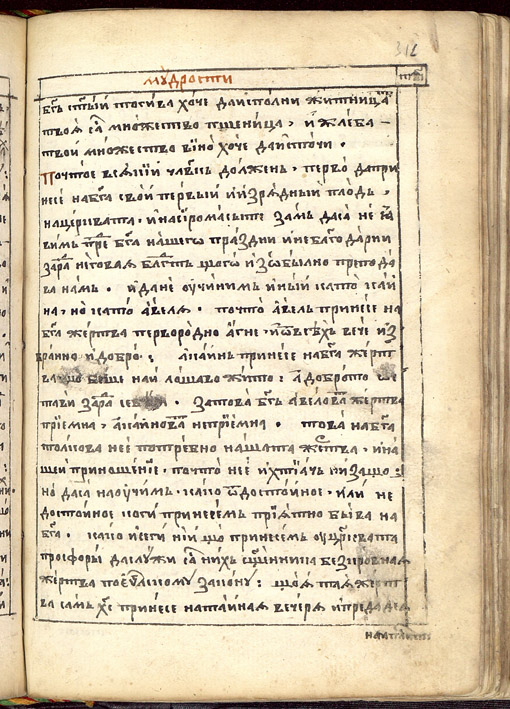 312
мꙋ́дрости
бг҃ъ ст҃ы́й тогива хо́че даиспо́лни жи́тница
твоѧ̀ са̀ мно́жество пшени́ца , и хлѣ́ба
твой мно́жество ві́но хо́че даи́сточи .
Почто̀ всѧ́кїй чл҃вкъ до́лженъ , первѡ̀ дапри
несѐ на бг҃а сво́й пе́рвый и изрѧ́дный пло́дъ ,
на це́рквата . и насиромасы́те за́мъ даса̀ не ꙗ
ви́мъ пре́ бг҃а на́шегѡ пра́здни и не благода́рни
зара̀ не́говаѧ бл҃гть що́гѡ и зѡбы́лно препода́
ва на́мъ . и да не ᲂучини́мъ и ный като̀ каи́
на , но като̀ а́велѧ . почто̀ а́вель принесѐ на
бг҃а же́ртва перворо́дно а́гне , и ѿ всѣ́хъ ве́че и́з
бранно и до́бро : а ка́инъ принесѐ на бг҃а же́рт
ва що бѣ́ше най ло́шаво жи́то : а добро́то ѡ
та́ви зара̀ се́бѣ . за това̀ бг҃ъ а́велова же́ртва
прїе́мна , а ка́йнова непрїе́мна . това̀ на бг҃а
то́лкова не є̀ потре́бно на́шата же́ртва . и на́
шеи приноше́нїе . почто̀ не є̀ и́хтїачъ низащо̀ :
но да са̀ наᲂучи́мъ . какѡ̀ ѿ досто́йное . и́ли не
досто́йное кога̀ принесе́мъ прїѧ́тно бы́ва на
бг҃а . какѡ̀ и сеги́ нїй що̀ принесе́мъ ᲂу цр҃квата
просфоры̀ да слу́жи са̀ ни́хъ сщ҃е́нника безкро́внаѧ
же́ртва по є҆ѵⷢ҇лскомꙋ зако́нꙋ : що́ѧ таѧ̀ же́рт
ва са́мъ хс҃ъ принесѐ на та́йнаѧ ве́черѧ и предадѐ ѧ